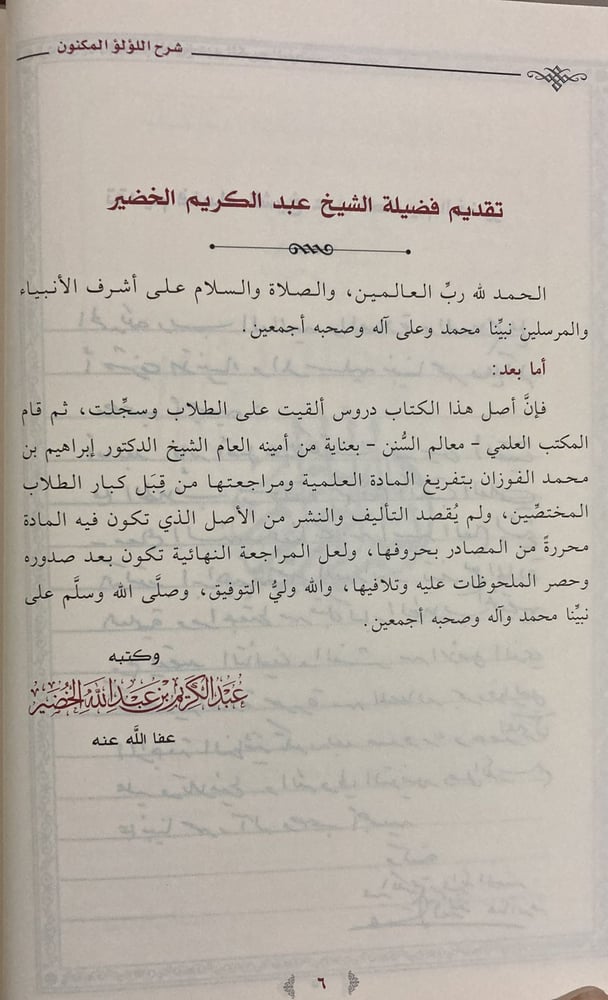 شرح اللؤلؤ المكنون
تقديم فضيلة الشيخ عبد الكريم الخضير
الحمد لله ربِّ العالمين، والصلاة والسلام على أشرف الأنبياء
والمرسلين نبيِّنا محمد وعلى آله وصحبه أجمعين.
أما بعد:
فإنَّ أصل هذا الكتاب دروس ألقيت على الطلاب وسجِّلت، ثم قام
المكتب العلمي - معالم السُّنن - بعناية من أمينه العام الشيخ الدكتور إبراهيم بن
محمد الفوزان بتفريغ المادة العلمية ومراجعتها من قِبَل كبار الطلاب
المختصِّين، ولم يُقصد التأليف والنشر من الأصل الذي تكون فيه المادة
محررةً من المصادر بحروفها، ولعل المراجعة النهائية تكون بعد صدوره
وحصر الملحوظات عليه وتلافيها، والله وليُّ التوفيق، وصلَّى الله وسلَّم على
نبيِّنا محمد وآله وصحبه أجمعين.
وكتبه
عبد الكريم بن عبد الله الخضير
عفا الله عنه
٦